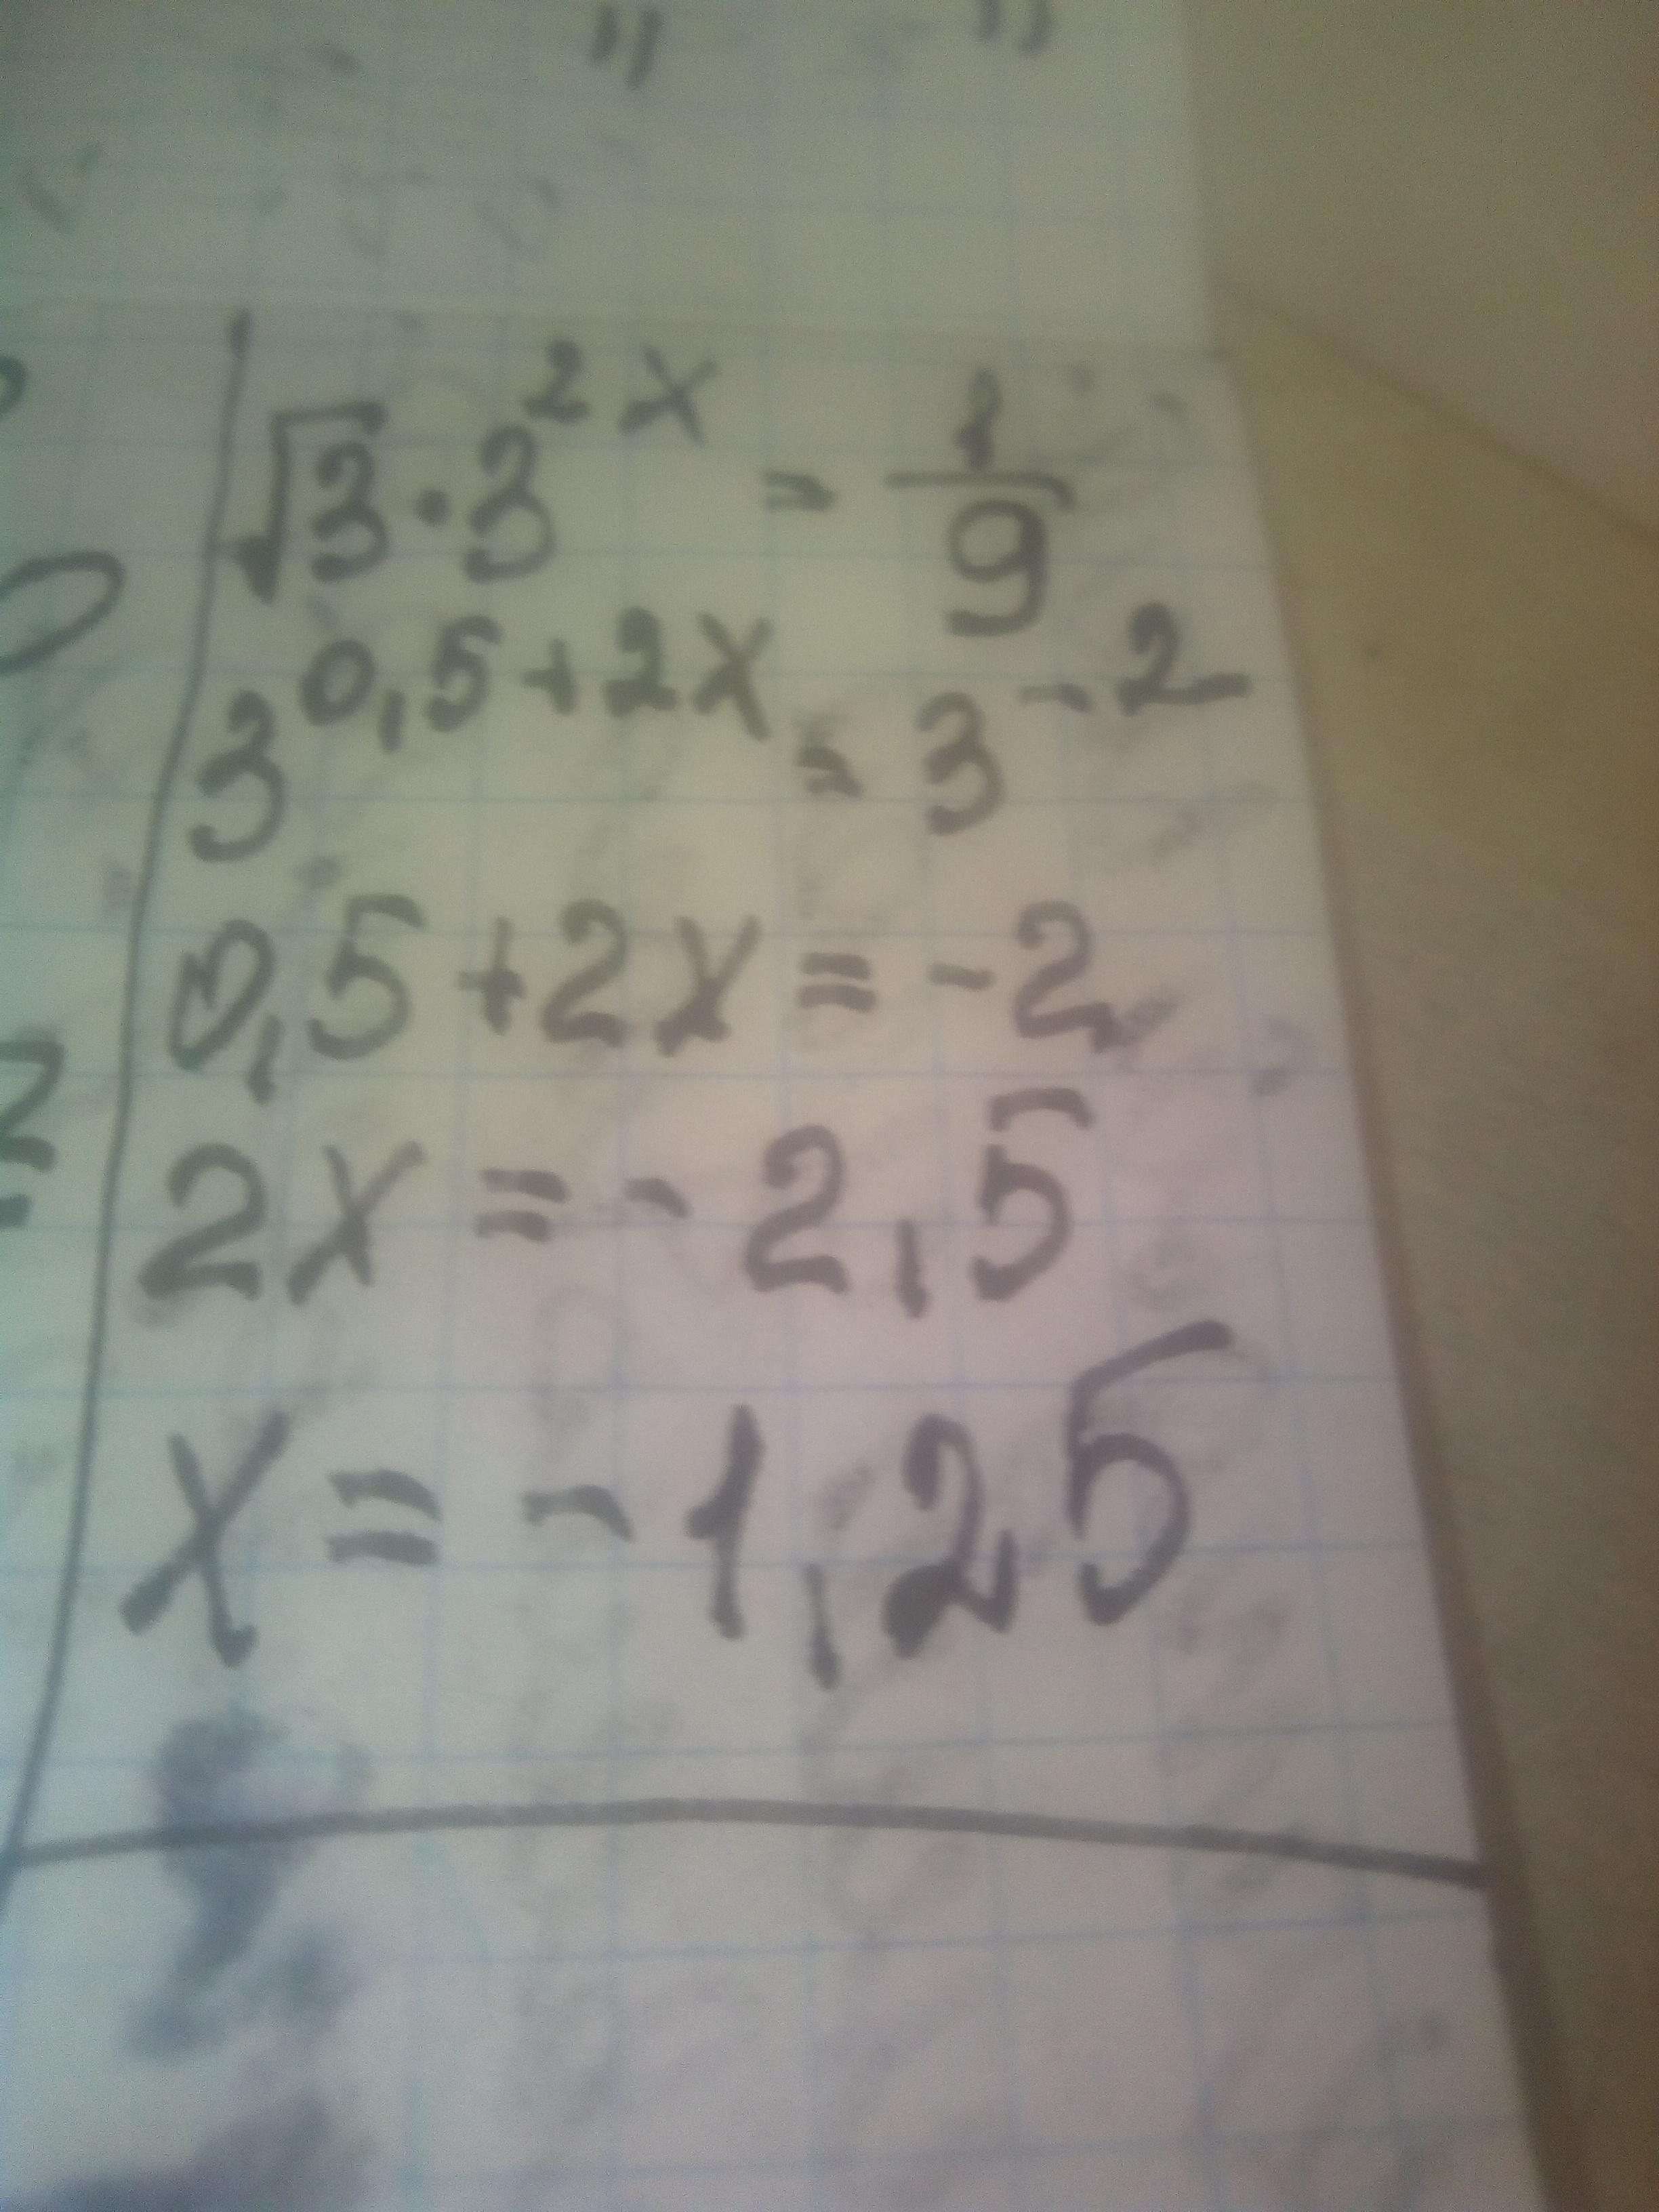 √3·3^2x = 1/9
3^0,5+2x = 3^-2
0,5+2x=-2
2x=-2,5
x=-1,25